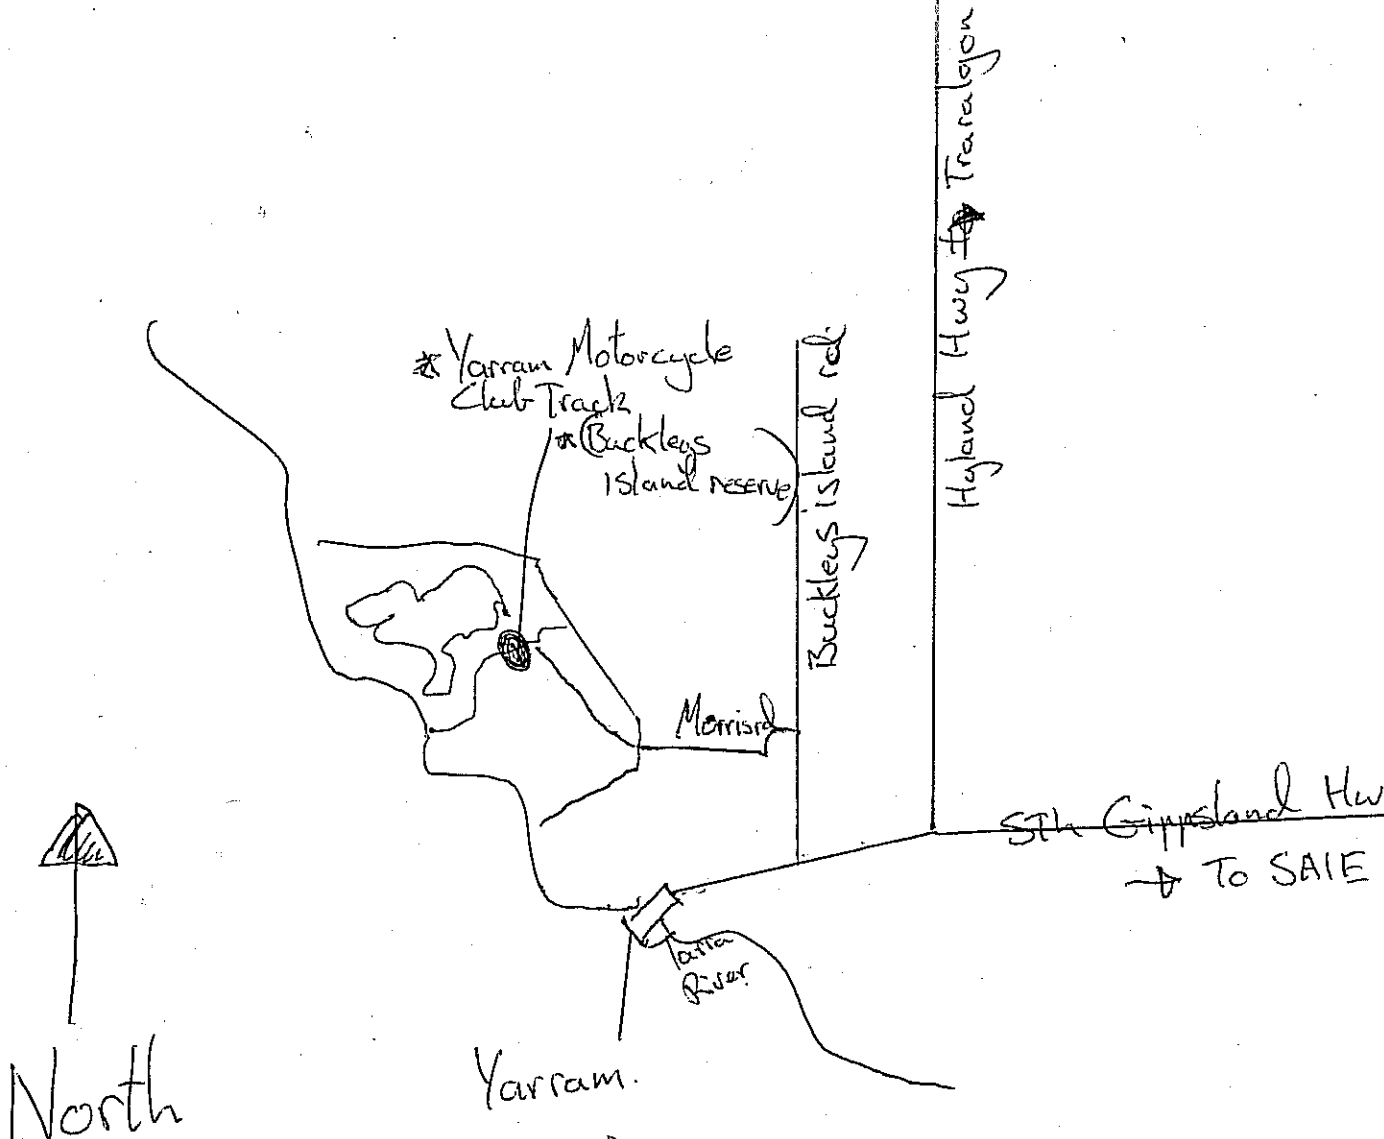 Hyland Hwy to → Traralgon
* Yarram Motorcycle
Club Track
* (Buckleys
Island reserve)
Buckleys Island rd.
Morris rd
Sth Gippsland Hw
→ To SALE
Tarra
River
Yarram.
North